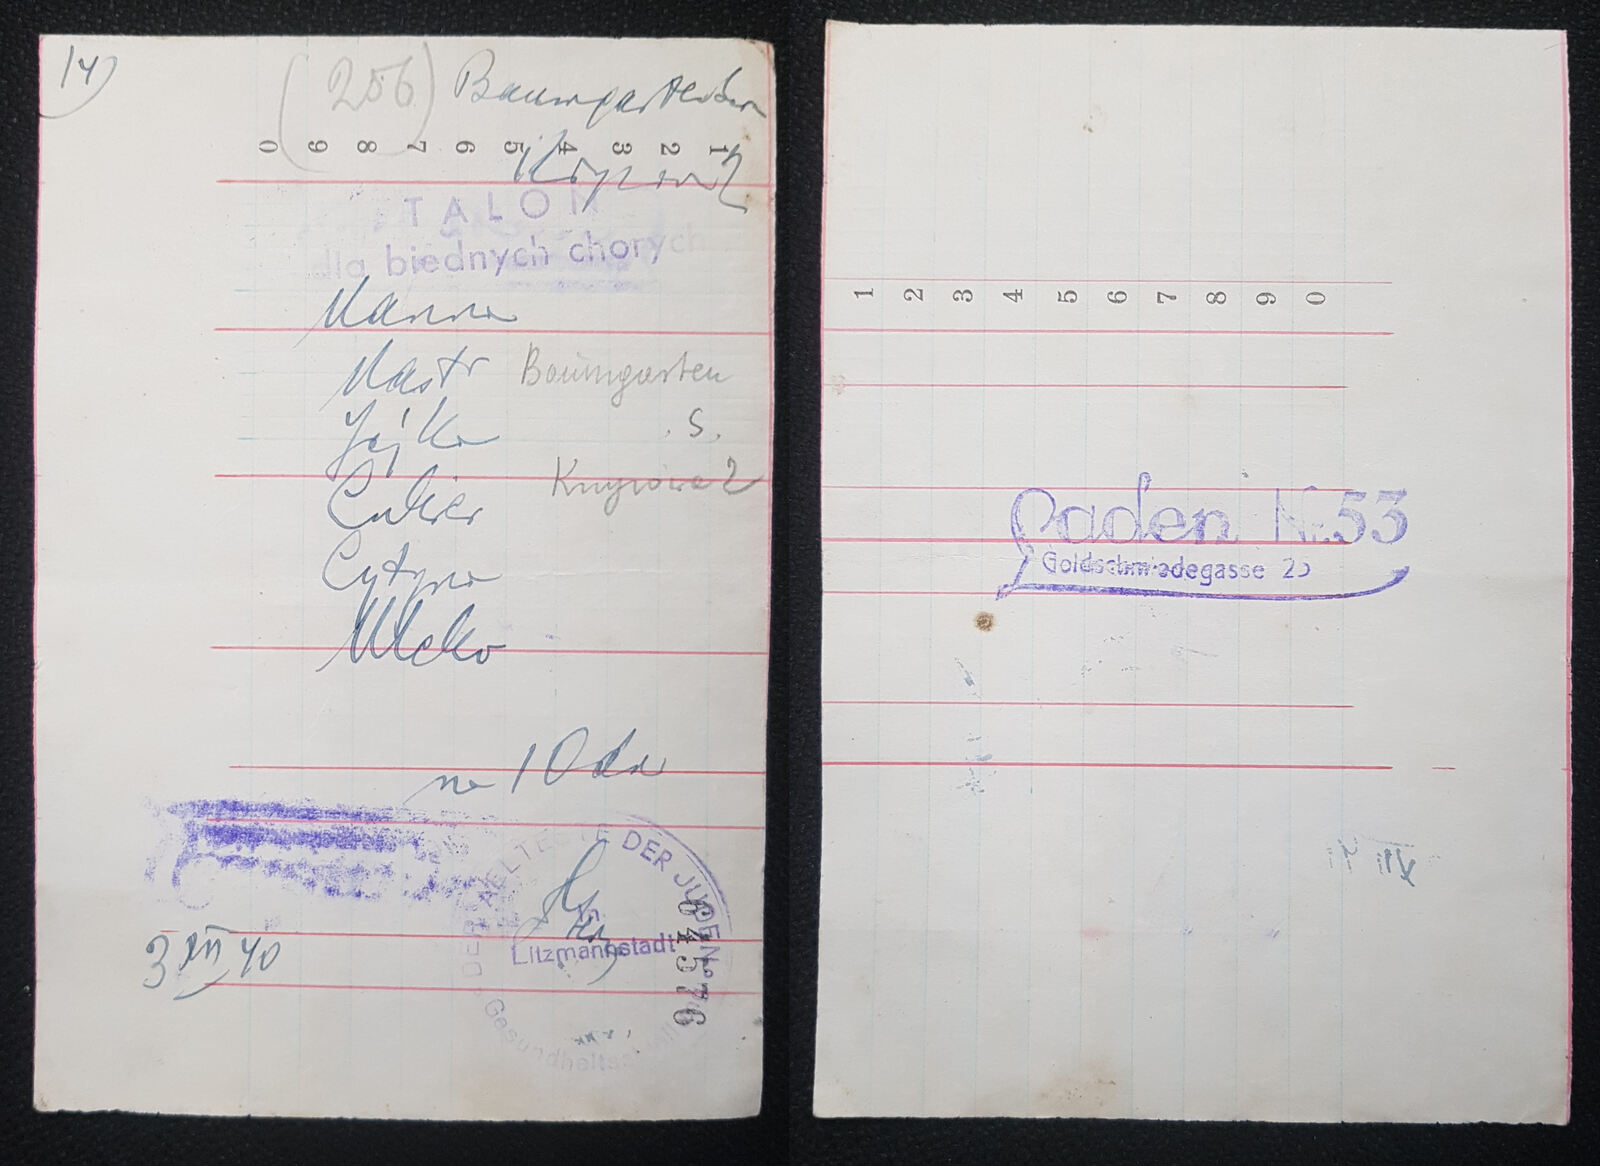 14)
(256) Baumgarten
0 9 8 7 6 5 4 3 2 1
TALON
dla biednych chorych
Manna
Masło Baumgarten
Jajka S.
Cukier
Cytryna
Mleko
na 10 dni
DER AELTESTE DER JUDEN
in
Litzmannstadt
Gesundheitsabteilung
64576
3 XII 40
1 2 3 4 5 6 7 8 9 0
Laden Nr. 53
Goldschmiedegasse